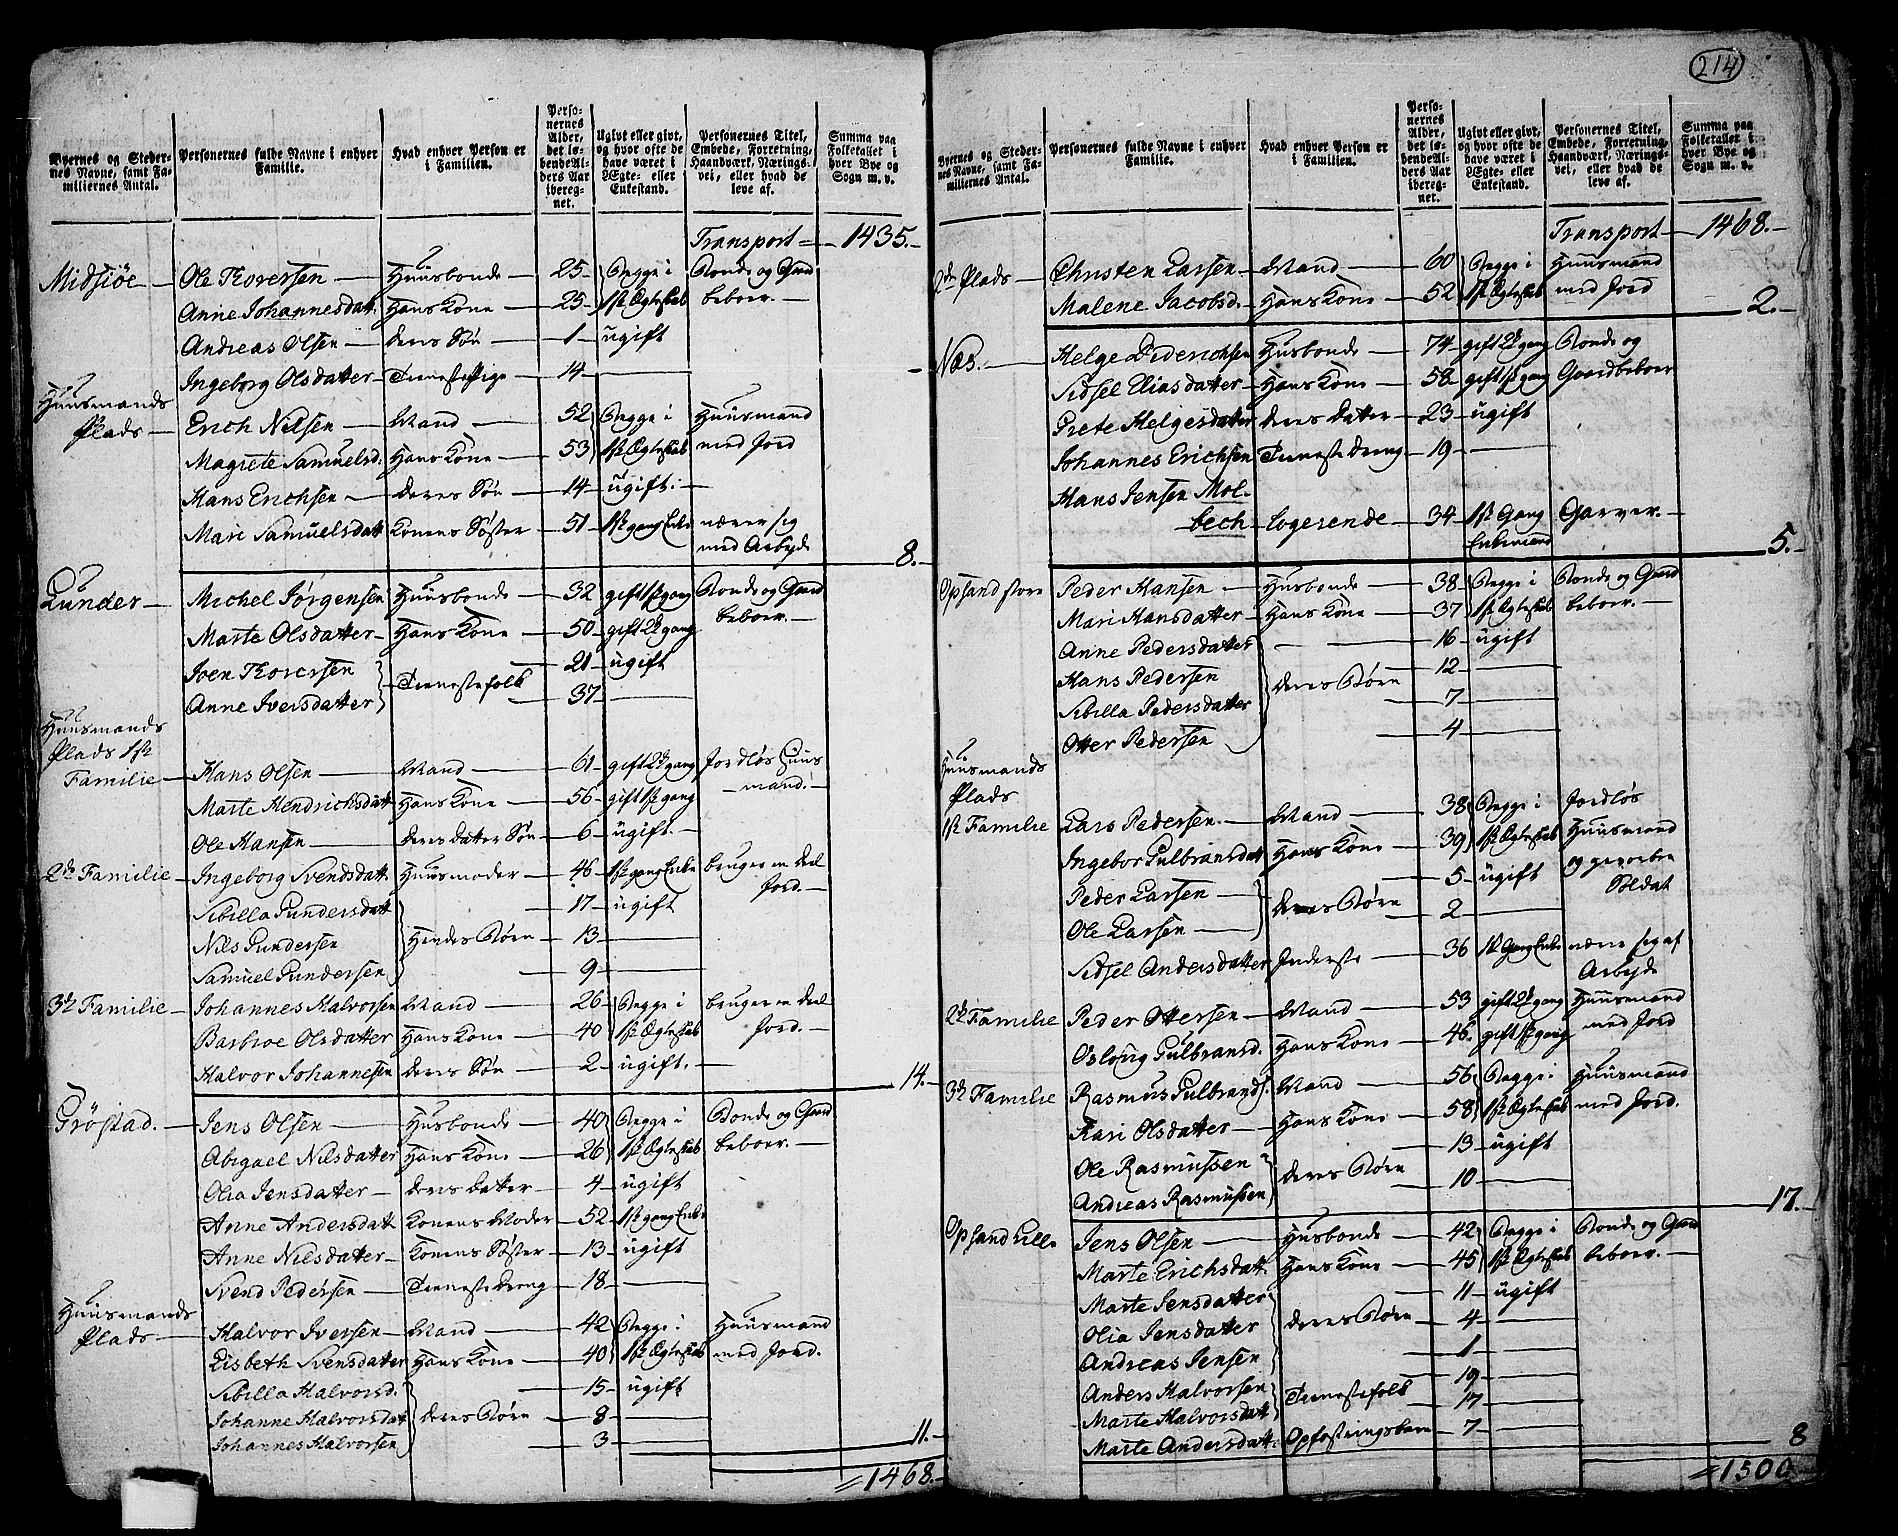 214
Byernes og Stedernes Navne, samt Familiernes Antal.
Personernes fulde Navne i enhver Familie.
Hvad enhver Person er i Familien.
Personernes Alder, det løbendeAlders Aar iberegnet.
Ugivt eller givt, og hvor ofte de have været i Ægte- eller Enkestand.
Personernes Titel, Embede, Forretning, Haandværk, Næringsvei, eller hvad de leve af.
Summa paa Folketallet i hver Bye og Sogn m. v.
Transport — 1435.
Midsiöe — Ole Thoversen — Huusbonde — 25 — Begge i Bonde og Gaard
Anne Johannesdatt. Hans Kone — 25 — 1ste Ægteskab beboer. —
Andreas Olsen — deres Søn — 1 — ugift
Ingeborg Olsdatter — Tienestepige — 14 —
Huusmands
Plads — Erich Nilsen — Mand — 52 Begge i Huusmand
Magrete Samuelsd. Hans Kone — 53 1ste Ægteskab med Jord
Hans Erichsen — deres Søn — 14 — ugift. —
Mari Samuelsdatt Konens Søster — 51 — 1ste gang Enke nærer sig
med Arbeyde
8.
Lunder — Michel Jørgensen Huusbonde — 32 gift 1ste gang Bonde og Gaard
Marte Olsdatter — Hans Kone — 50 — gift 2de gang beboer. —
Joen Thoversen — 21 — ugift
Anne Iversdatter Tienestefolk — 37 —
Huusmands
Plads 1ste
Familie — Hans Olsen — Mand — 61 — gift 2de gang Jordløs Huus
Marte Hendrichsdatt Hans Kone — 56 — gift 1ste gang mand. —
Ole Hansen — deres datter Søn — 6 — ugift. —
2de Familie — Ingeborg Svendsdatt. Huusmoder — 46 — 1ste gang Enke bruger en deel
Sibilla Gundersdatt — 17 — ugift Jord. —
Nils Gundersen Hendes Børn — 13 —
Samuel Gundersen — 9 —
3de Familie — Johannes Halvorsen Mand — 26 Begge i bruger en deel
Barbroe Olsdatter Hans Kone — 40 1ste Ægteskab Jord. —
Halvor Johannesen deres Søn — 2 — ugift. —
14.
Gröstad. — Jens Olsen — Husbonde — 40 Begge i Bonde og Gaard
Abigael Nilsdatter Hans Kone — 26 1ste Ægteskab beboer. —
Olia Jensdatter — deres datter — 4 — ugift
Anne Andersdatt Konens Moder — 52 — 1ste gang Enke
Anne Nilsdatter — Konens Søster — 13 — ugift
Svend Pedersen — Tieneste dreng — 18 —
Huusmands
Plads — Halvor Iversen — Mand — 42 Begge i Huusmand
Lisbeth Svensdatter Hans Kone — 40 1ste Ægteskab med Jord.
Sibilla Halvorsd. — 15 — ugift
Johanne Halvorsdat deres Børn — 8 —
Johannes Halvorsen — 3 —
11.
1468.
Byernes og Stedernes Navne, samt Familiernes Antal.
Personernes fulde Navne i enhver Familie.
Hvad enhver Person er i Familien.
Personernes Alder, det løbende Alders Aar iberegnet.
Ugivt eller givt, og hvor ofte de have været i Ægte- eller Enkestand.
Personernes Titel, Embede, Forretning, Haandværk, Næringsvei, eller hvad de leve af.
Summa paa Folketallet i hver Bye og Sogn m. v.
Transport — 1468.
2de Plads — Christen Larsen — Mand — 60 Begge i Huusmand
Malene Jacobsd. Hans Kone — 52 1ste Ægteskab med Jord
2.
Næs. — Helge Diderichsen Husbonde — 74 — gift 2de gang Bonde og
Sidsel Eliasdatter — Hans Kone — 58 — gift 1ste gang Gaardbeboer
Grete Helgesdatter deres datter — 23 — ugift
Johannes Erichsen Tieneste dreng — 19 —
Hans Jensen Mol-
bech — logerende — 34 — 1ste Gang Garver. —
Enkemand
5.
Opsand store Peder Hansen — Husbonde — 38 Begge i Bonde og Gaard
Mari Hansdatter — Hans Kone — 37 1ste Ægteskab beboer. —
Anne Pedersdatter — 16 — ugift
Hans Pedersen — 12 —
Sibilla Pedersdatter deres Børn — 7 —
Otter Pedersen — 4 —
Huusmands
Plads
1ste Familie Lars Pedersen. — Mand — 38 Begge i Jordløs
Ingebor Gulbransdat Hans Kone — 39 1ste Ægteskab Huusmand
Peder Larsen — 5 — ugift og gevorben
Ole Larsen — deres Børn — 2 — Soldat
Sidsel Andersdatter Inderste — 36 1ste Gang Enke nærer sig af
Arbeyde
2de Familie Peder Ottersen — Mand — 53 gift 2de gang Huusmand
Gulbransd. Hans Kone — 46. gift 1ste gang med Jord
3de Familie Rasmus Gulbrands. Mand — 56 Begge i Huusmand
Kari Olsdatter — Hans Kone — 58 1ste Ægteskab med Jord.
Ole Rasmussen — 13 — ugift
Andreas Rasmussen deres Børn — 10 —
17.
Opsand Lille Jens Olsen — Husbonde — 42 Begge i Bonde og Gaard
Marte Erichsdatt. Hans Kone — 45 1ste Ægteskab beboer. —
Marte Jensdatter — 11 — ugift
Olia Jensdatter deres Børn — 4 —
Andreas Jensen — 1 —
Anders Halvorsen — 19 —
Marte Halvorsdatt Tienestefolk — 17 —
Marte Andersdatt. Opfostringsbarn — 7 —
8
1500